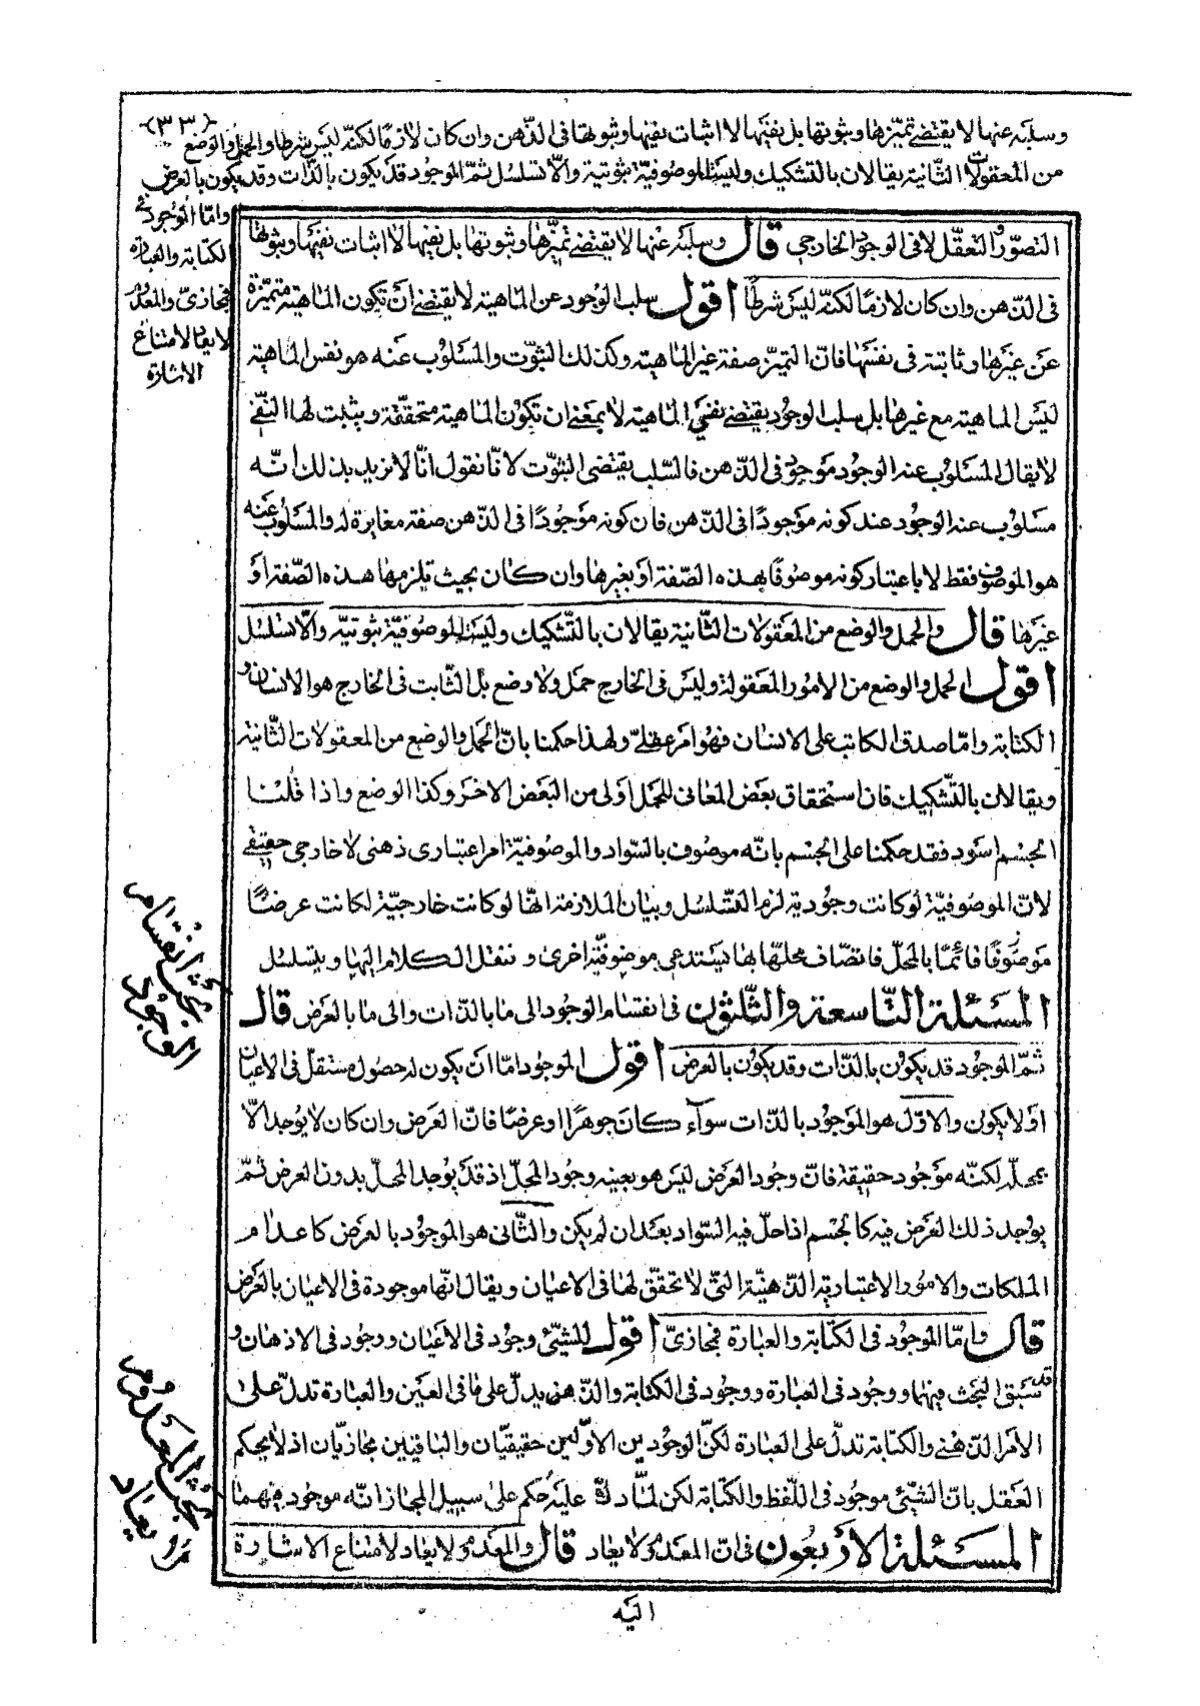 ﴿٣٣﴾
وسلبه عنها لا يقتضي تميزها وثبوتها بل نفيها لا اثبات نفيها وثبوتها في الذهن وان كان لازمًا لكنه ليس شرطا والحمل والوضع
من المعقولات الثانية يقالان بالتشكيك وليست الموصوفية ثبوتية والّا تسلسل ثمّ الموجود قد يكون بالذات وقد يكون بالعرض
وامّا الموجود في
الكتابة والعبارة
فمجازيّ والمعدوم
لا يعاد لامتناع
الاشارة
التصوّر والتعقّل لا في الوجود الخارجي قال وسلبه عنها لا يقتضي تميّزها وثبوتها بل نفيها لا اثبات نفيها وثبوتها
في الذهن وان كان لازمًا لكنّه ليس شرطًا اقول سلب الوجود عن الماهية لا يقتضي ان تكون الماهية متميّزة
عن غيرها وثابتة في نفسها فانّ التميّز صفة غير الماهية وكذلك الثبوت والمسلوب عنه هو نفس الماهية
ليس الماهية مع غيرها بل سلب الوجود يقتضي نفي الماهية لا بمعنى ان تكون الماهية متحققة ويثبت لها النفي
لا يقال المسلوب عنه الوجود موجود في الذهن فالسّلب يقتضي الثبوت لانّا نقول انّا لا نريد بذلك انّه
مسلوب عنه الوجود عند كونه موجودًا في الذهن فان كونه موجودًا في الذهن صفة مغايرة له والمسلوب عنه
هو الموصوف فقط لا باعتبار كونه موصوفًا بهذه الصّفة او بغيرها وان كان بحيث تلزمها هذه الصّفة او
غيرها قال والحمل والوضع من المعقولات الثّانية يقالان بالتّشكيك وليست الموصوفيّة ثبوتيّة والّا تسلسل
اقول الحمل والوضع من الامور المعقولة وليس في الخارج حمل ولا وضع بل الثابت في الخارج هو الانسان و
الكتابة وامّا صدق الكاتب على الانسان فهو امر عقليّ ولهذا حكمنا بانّ الحمل والوضع من المعقولات الثّانية
ويقالان بالتّشكيك فان استحقاق بعض المعاني للحمل اولى من البعض الاخر وكذا الوضع واذا قلنا
الجسم اسود فقد حكمنا على الجسم بانّه موصوف بالسّواد والموصوفيّة امر اعتباري ذهني لا خارجي حقيقي
لانّ الموصوفيّة لو كانت وجودية لزم التّسلسل وبيان الملازمة انّها لو كانت خارجيّة لكانت عرضًا
موصوفًا قائمًا بالمحلّ فاتصاف محلّها بها يستدعي موصوفيّة اخرى وننقل الكلام اليها ويتسلسل
المسئلة التّاسعة والثّلثون في انقسام الوجود الى ما بالذّات والى ما بالعرض قال
ثمّ الموجود قد يكون بالذّات وقد يكون بالعرض اقول الموجود امّا ان يكون له حصول مستقلّ في الاعيان
او لا يكون والاوّل هو الموجود بالذّات سواء كان جوهرًا او عرضًا فانّ العرض وان كان لا يوجد الّا
بمحلّه لكنّه موجود حقيقة فانّ وجود العرض ليس هو بعينه وجود المحلّ اذ قد يوجد المحلّ بدون العرض ثمّ
يوجد ذلك العرض فيه كالجسم اذا حلّ فيه السّواد بعد ان لم يكن والثّاني هو الموجود بالعرض كاعدام
الملكات والامور الاعتبارية الذّهنيّة الّتي لا تحقّق لها في الاعيان ويقال انّها موجودة في الاعيان بالعرض
قال وامّا الموجود في الكتابة والعبارة فمجازيّ اقول للشّيء وجود في الاعيان ووجود في الاذهان و
قد سبق البحث فيهما ووجود في العبارة ووجود في الكتابة والذهن يدلّ على ما في العين والعبارة تدلّ على
الامر الذهني والكتابة تدلّ على العبارة لكنّ الوجودين الاوّلين حقيقيّان والباقيين مجازيّان اذ لا يحكم
العقل بانّ الشّيء موجود في اللّفظ والكتابة لكن لمّا دلّا عليه حكم على سبيل المجاز انّه موجود فيهما
المسئلة الاربعون في انّ المعدوم لا يعاد قال والمعدوم لا يعاد لامتناع الاشارة
اليه
بحث انقسام
الوجود
بحث المعدوم
يعاد